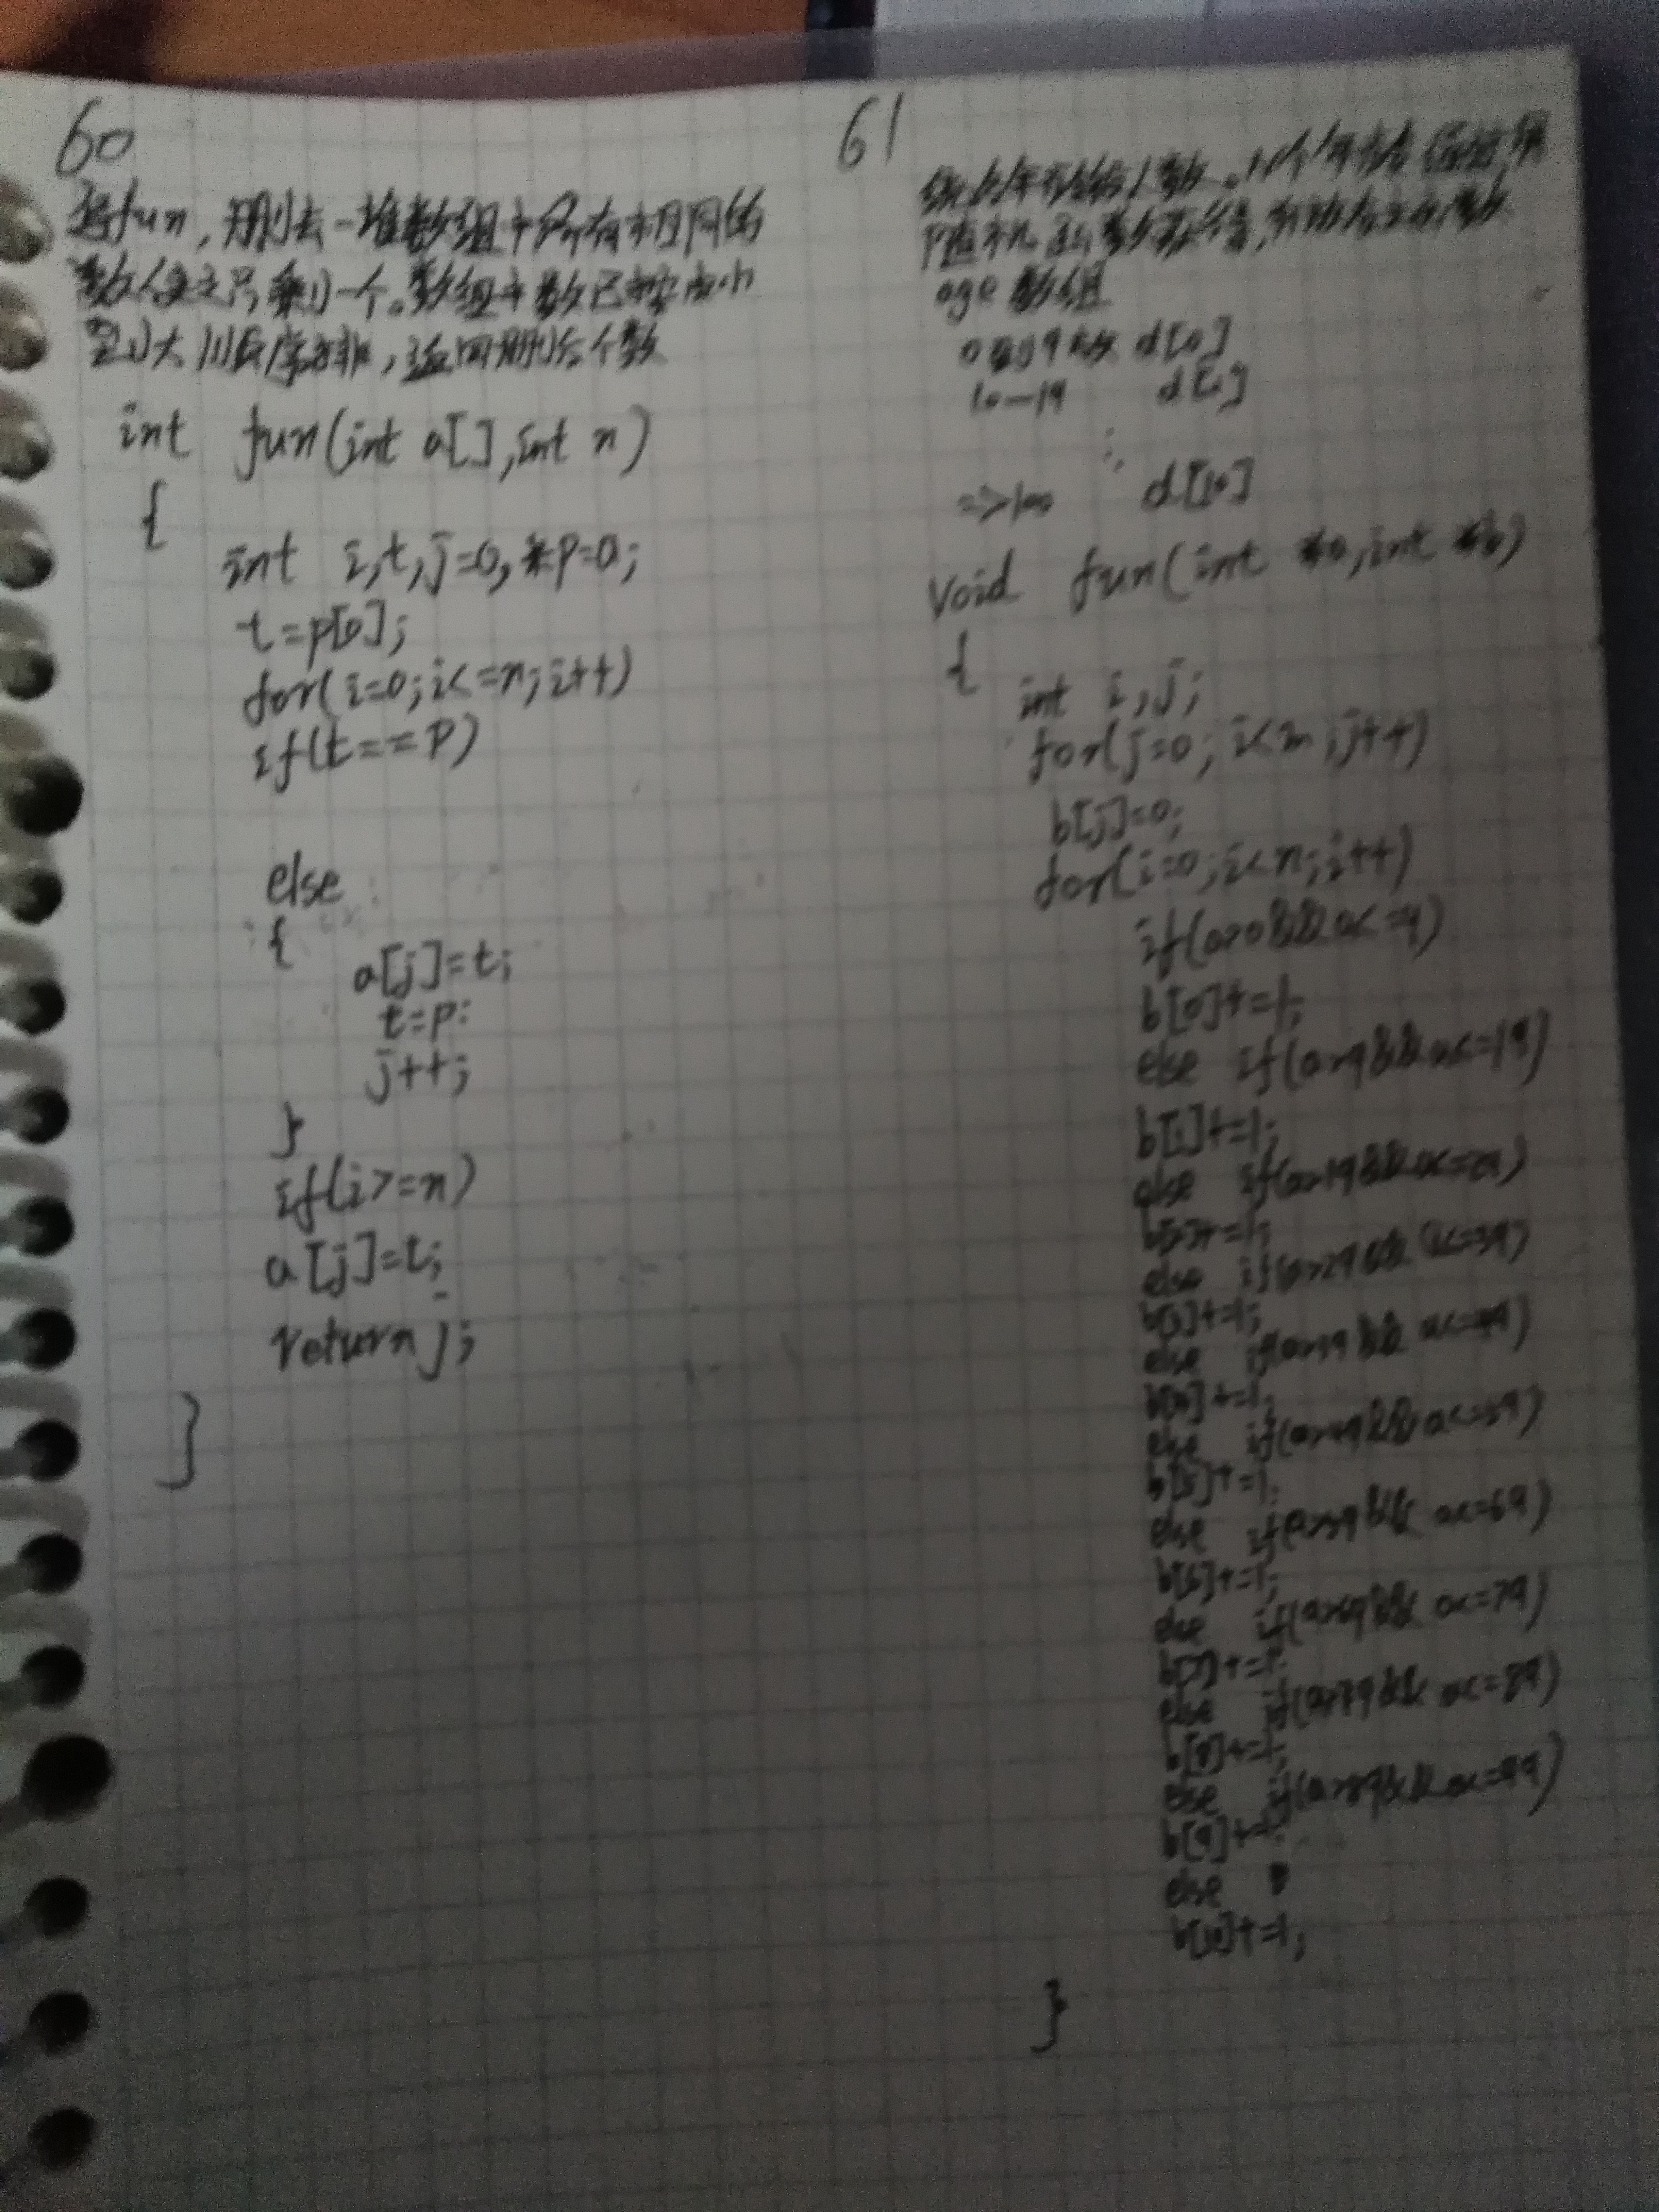 60
写fun,删去一堆数组中所有相同的
数使之只剩一个。数组中数已按由小
到大顺序排,返回删后个数
int fun(int a[],int n)
{
int i,t,j=0,*p=a;
t=p[0];
for(i=0;i<=n;i++)
if(t==p)
else
{
a[j]=t;
t=p;
j++;
}
if(i>=n)
a[j]=t;
return j;
}
61
统计年龄 人数。
随机
age 数组
0到9 d[0]
10—19 d[1]
⋮
=>100 d[10]
void fun(int *a,int *b)
{
int i,j;
for(j=0;i<m;j++)
b[j]=0;
for(i=0;i<n;i++)
if(a>0&&a<=9)
b[0]+=1;
else if(a>9&&a<=19)
b[1]+=1;
else if(a>19&&a<=29)
b[2]+=1;
else if(a>29&&a<=39)
b[3]+=1;
else if(a>39&&a<=49)
b[4]+=1;
else if(a>49&&a<=59)
b[5]+=1;
else if(a>59&&a<=69)
b[6]+=1;
else if(a>69&&a<=79)
b[7]+=1;
else if(a>79&&a<=89)
b[8]+=1;
else if(a>89&&a<=99)
b[9]+=1;
else
b[10]+=1;
}